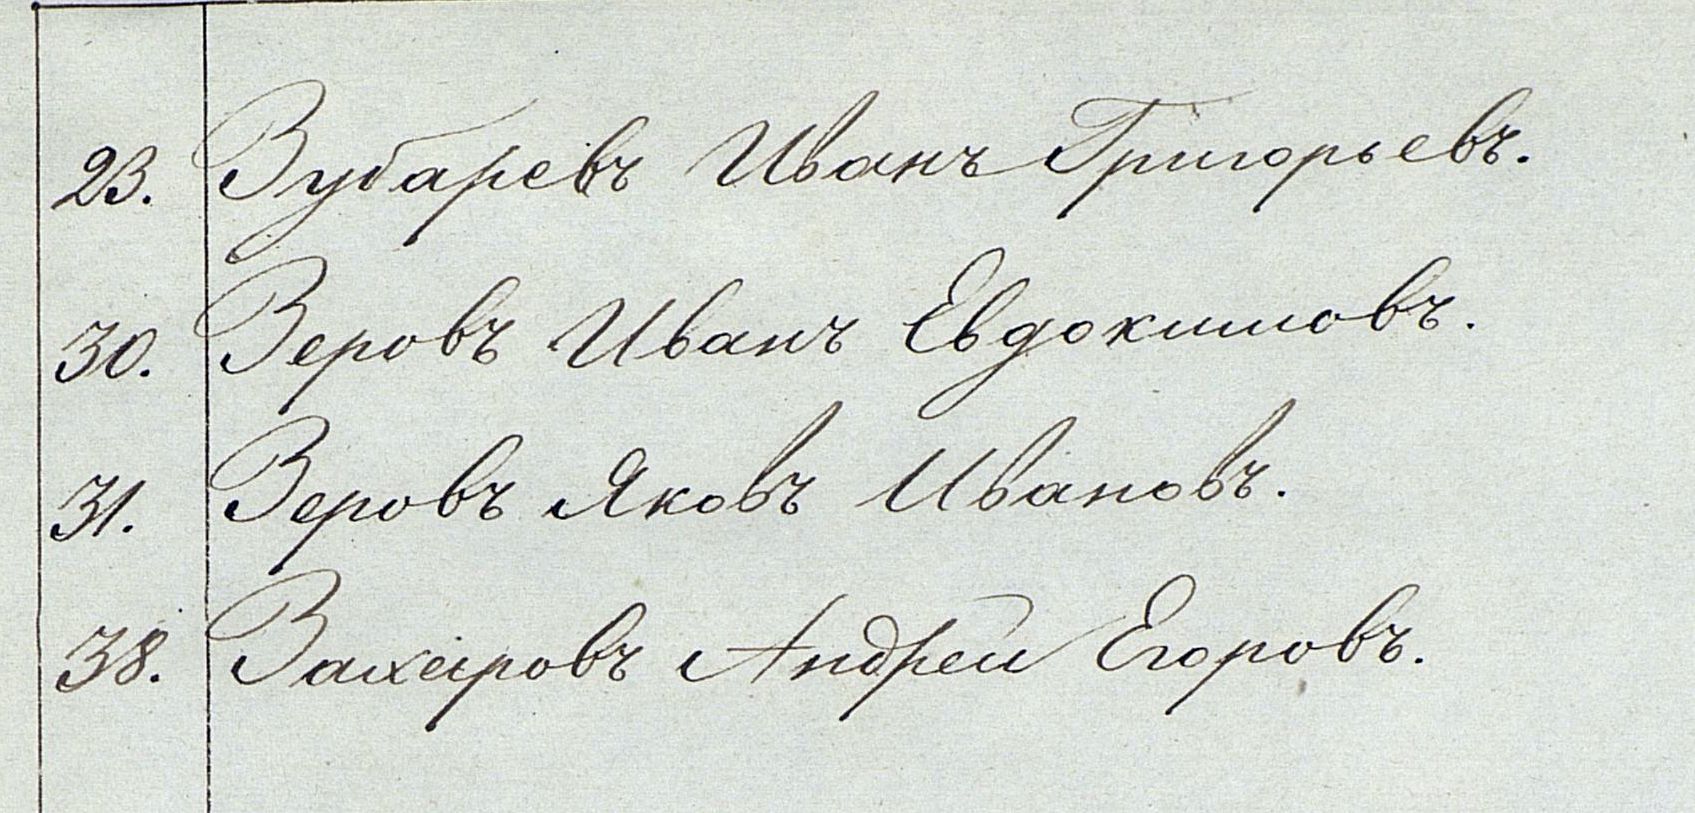 23. Зубаревъ Иванъ Григорьевъ.
30. Зеровъ Иванъ Евдокимовъ.
31. Зеровъ Яковъ Ивановъ.
38. Андрей Егоровъ.